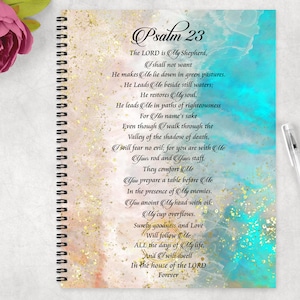 Psalm 23
The LORD is My Shepherd,
I shall not want
He makes Me lie down in green pastures,
He Leads Me beside still waters;
He restores My soul,
He leads Me in paths of righteousness
For His name's sake
Even though I walk through the
Valley of the shadow of death.
I will fear no evil, for you are with Me
Your rod and Your staff
They comfort Me
You prepare a table before Me
In the presence of My enemies.
You anoint My head with oil
My cup overflows.
Surely goodness and Love
Will follow Me
ALL the days of My life,
And I will dwell
In the house of the LORD
Forever